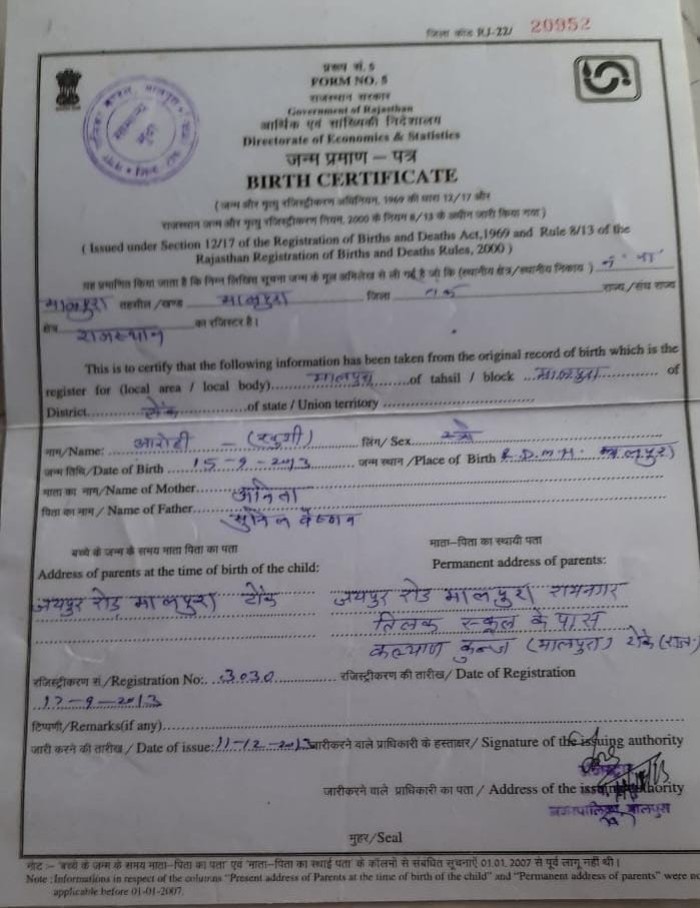 जिला कोड RJ-22/ 20952
प्ररूप सं. 5
FORM NO. 5
राजस्थान सरकार
Government of Rajasthan
आर्थिक एवं सांख्यिकी निदेशालय
Directorate of Economics & Statistics
जन्म प्रमाण – पत्र
BIRTH CERTIFICATE
( जन्म और मृत्यु रजिस्ट्रीकरण अधिनियम, 1969 की धारा 12/17 और
राजस्थान जन्म और मृत्यु रजिस्ट्रीकरण नियम, 2000 के नियम 8/13 के अधीन जारी किया गया )
( Issued under Section 12/17 of the Registration of Births and Deaths Act,1969 and Rule 8/13 of the
Rajasthan Registration of Births and Deaths Rules, 2000 )
यह प्रमाणित किया जाता है कि निम्न लिखित सूचना जन्म के मूल अभिलेख से ली गई है जो कि (स्थानीय क्षेत्र/स्थानीय निकाय ) न. पा
मालपुरा तहसील/खण्ड मालपुरा जिला टोंक राज्य/संघ राज्य
क्षेत्र राजस्थान का रजिस्टर है।
This is to certify that the following information has been taken from the original record of birth which is the
register for (local area / local body) मालपुरा of tahsil / block मालपुरा of
District टोंक of state / Union territory
नाम/Name: आरोही – (खुशी) लिंग/ Sex स्त्री
जन्म तिथि/Date of Birth 15-9-2013 जन्म स्थान /Place of Birth R.D.M.H. मालपुरा
माता का नाम/Name of Mother अनिता
पिता का नाम / Name of Father सुनिल वैष्णव
बच्चे के जन्म के समय माता पिता का पता माता-पिता का स्थायी पता
Address of parents at the time of birth of the child: Permanent address of parents:
जयपुर रोड मालपुरा टोंक जयपुर रोड मालपुरा रामनगर
तिलक स्कूल के पास
कल्याण कुन्ज (मालपुरा) टोंक (राज.)
रजिस्ट्रीकरण सं/Registration No: 3030 रजिस्ट्रीकरण की तारीख/ Date of Registration
17-9-2013
टिप्पणी/Remarks(if any)
जारी करने की तारीख / Date of issue: 11-12-2013 जारीकरने वाले प्राधिकारी के हस्ताक्षर/ Signature of the issuing authority
जारीकरने वाले प्राधिकारी का पता / Address of the issuing authority
नगरपालिका मालपुरा
मुहर/Seal
नोट :– 'बच्चे के जन्म के समय माता-पिता का पता' एवं 'माता-पिता का स्थाई पता' के कॉलमों से संबंधित सूचनाऐं 01.01. 2007 से पूर्व लागू नहीं थी।
Note : Informations in respect of the columns "Present address of Parents at the time of birth of the child" and "Permanent address of parents" were no
applicable before 01-01-2007.